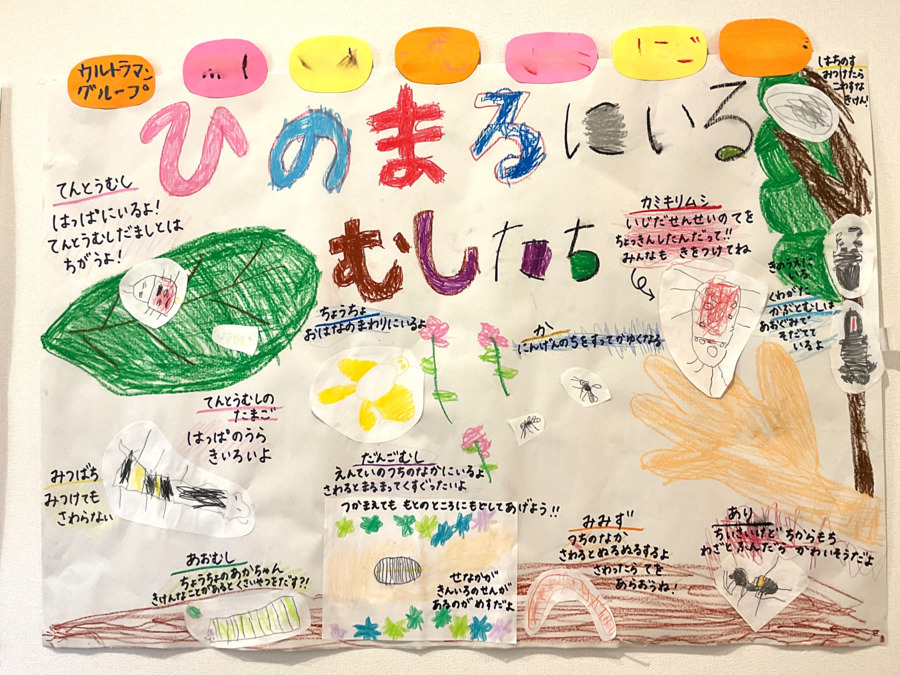 ウルトラマン
グループ
はちのす
みつけたら
こわすな
きけん!
ひのまるにいる
むしたち
てんとうむし
はっぱにいるよ!
てんとうむしだましとは
ちがうよ!
カミキリムシ
いじだせんせいのてを
ちょっきんしたんだって!!
みんなも きをつけてね
きのうえに
いる
くわがた
かぶとむしは
あおぐみで
そだてて
いるよ
ちょうちょ
おはなのまわりにいるよ
か
にんげんのちをすってかゆくなる
てんとうむしの
たまご
はっぱのうら
きいろいよ
みつばち
みつけても
さわらない
だんごむし
えんていのつちのなかにいるよ
さわるとまるまってくすぐったいよ
つかまえても もとのところにもどしてあげよう!!
せなかが
きんいろのせんが
あるのがめすだよ
あおむし
ちょうちょのあかちゃん
きけんなことがあるとくさいやつをだす?!
みみず
つちのなか
さわるとぬるぬるするよ
さわったら てを
あらおうね!
あり
ちいさいけど ちからもち
わざとふんだら かわいそうだよ